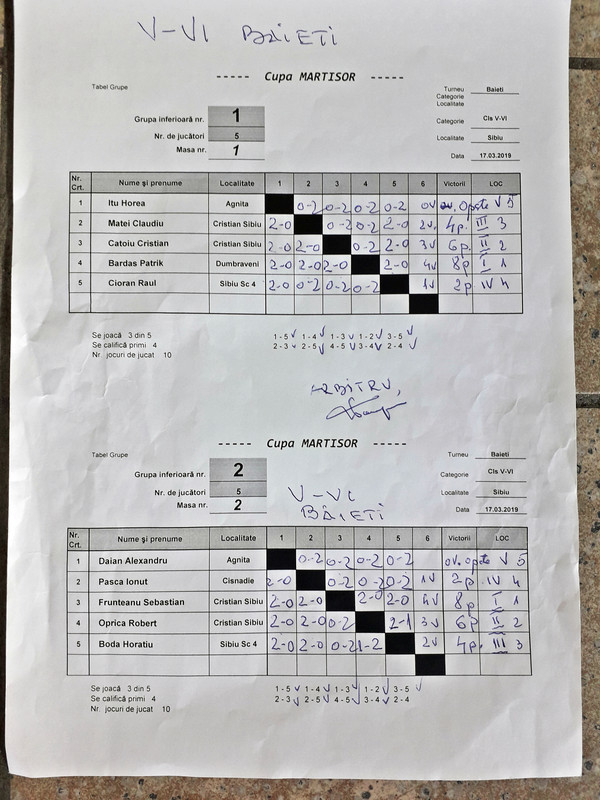 V-VI BĂIEȚI
----- Cupa MARTISOR -----
Tabel Grupe
Turneu Baieti
Categorie
Localitate
Grupa inferioară nr. 1
Categorie Cls V-VI
Nr. de jucători 5
Localitate Sibiu
Masa nr. 1
Data 17.03.2019
Nr. Crt. Nume și prenume Localitate 1 2 3 4 5 6 Victorii LOC
1 Itu Horea Agnita 0-2 0-2 0-2 0-2 0v V 5
2 Matei Claudiu Cristian Sibiu 2-0 0-2 0-2 2-0 2v. 4p. III 3
3 Catoiu Cristian Cristian Sibiu 2-0 2-0 0-2 2-0 3v 6p. II 2
4 Bardas Patrik Dumbraveni 2-0 2-0 2-0 2-0 4v 8p I 1
5 Cioran Raul Sibiu Sc 4 2-0 0-2 0-2 0-2 1v 2p IV 4
Se joacă 3 din 5 1-5 ✓ 1-4 ✓ 1-3 ✓ 1-2 ✓ 3-5 ✓
Se califică primi 4 2-3 ✓ 2-5 ✓ 4-5 ✓ 3-4 ✓ 2-4 ✓
Nr. jocuri de jucat 10
ARBITRU,
----- Cupa MARTISOR -----
Tabel Grupe
Turneu Baieti
Grupa inferioară nr. 2
Categorie Cls V-VI
Nr. de jucători 5
V-VI
Localitate Sibiu
Masa nr. 2
BĂIEȚI
Data 17.03.2019
Nr. Crt. Nume și prenume Localitate 1 2 3 4 5 6 Victorii LOC
1 Daian Alexandru Agnita 0-2 0-2 0-2 0-2 V 5
2 Pasca Ionut Cisnadie 2-0 0-2 0-2 0-2 1v 2p. IV 4
3 Frunteanu Sebastian Cristian Sibiu 2-0 2-0 2-0 2-0 4v 8p I 1
4 Oprica Robert Cristian Sibiu 2-0 2-0 0-2 2-1 3v 6p II 2
5 Boda Horatiu Sibiu Sc 4 2-0 2-0 0-2 1-2 2v 4p. III 3
Se joacă 3 din 5 1-5 ✓ 1-4 ✓ 1-3 ✓ 1-2 ✓ 3-5 ✓
Se califică primi 4 2-3 ✓ 2-5 ✓ 4-5 ✓ 3-4 ✓ 2-4
Nr. jocuri de jucat 10